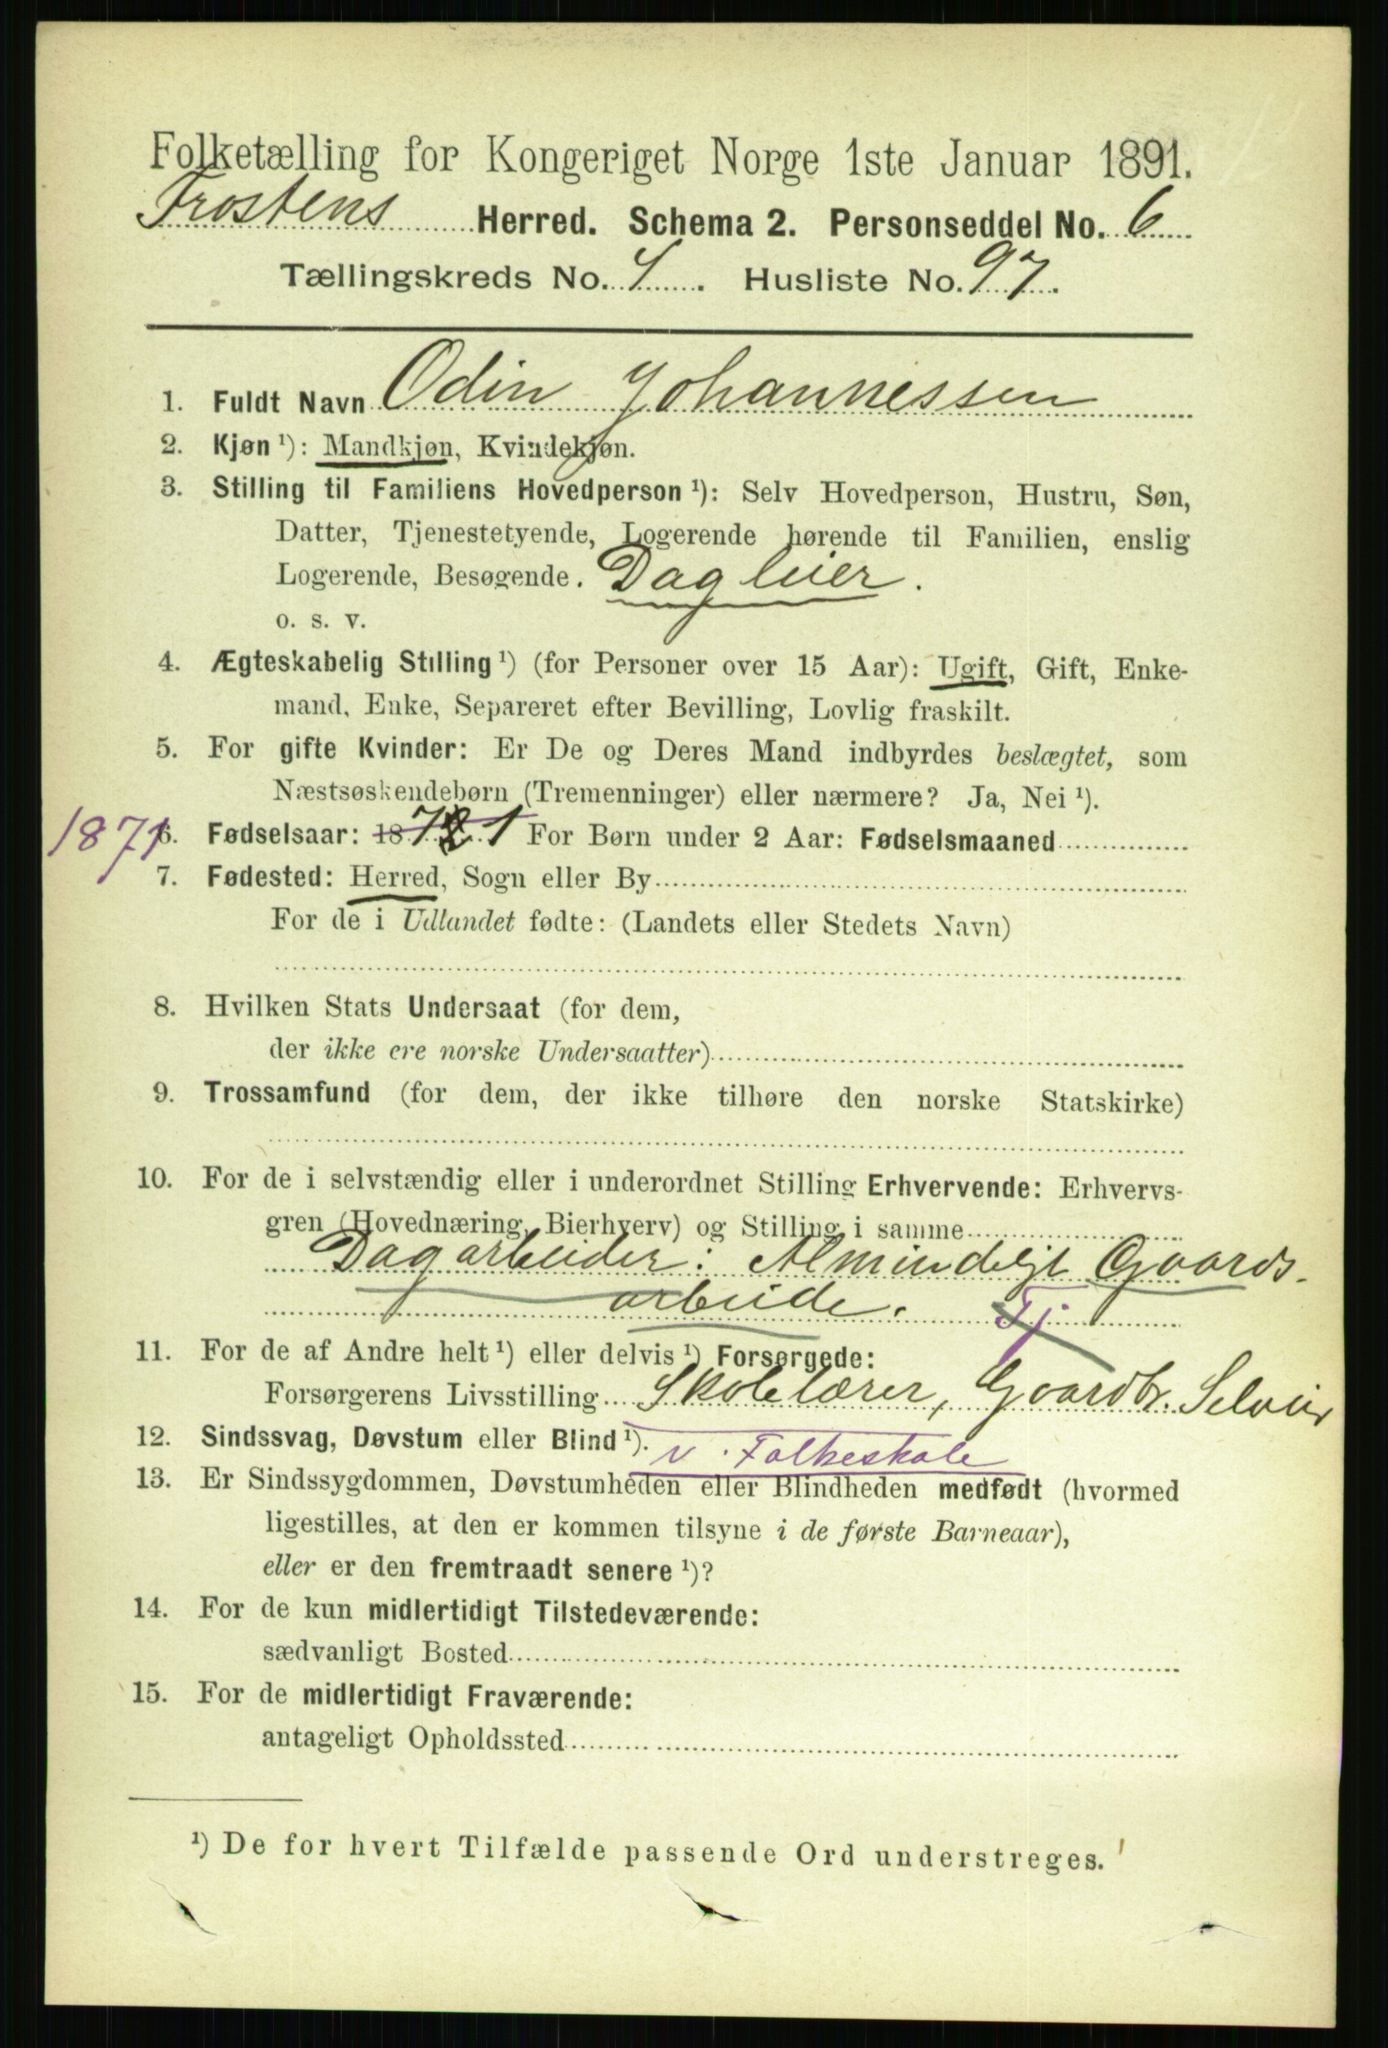 Folketælling for Kongeriget Norge 1ste Januar 1891.
Frostens Herred. Schema 2. Personseddel No. 6
Tællingskreds No. 4. Husliste No. 97.
1. Fuldt Navn Odin Johannessen
2. Kjøn ¹): Mandkjøn, Kvindekjøn.
3. Stilling til Familiens Hovedperson ¹): Selv Hovedperson, Hustru, Søn,
Datter, Tjenestetyende, Logerende hørende til Familien, enslig
Logerende, Besøgende. Dagleier.
o. s. v.
4. Ægteskabelig Stilling ¹) (for Personer over 15 Aar): Ugift, Gift, Enke-
mand, Enke, Separeret efter Bevilling, Lovlig fraskilt.
5. For gifte Kvinder: Er De og Deres Mand indbyrdes beslægtet, som
Næstsøskendebørn (Tremenninger) eller nærmere? Ja, Nei ¹).
1871 6. Fødselsaar: 1871 For Børn under 2 Aar: Fødselsmaaned
7. Fødested: Herred, Sogn eller By
For de i Udlandet fødte: (Landets eller Stedets Navn)
8. Hvilken Stats Undersaat (for dem,
der ikke ere norske Undersaatter)
9. Trossamfund (for dem, der ikke tilhøre den norske Statskirke)
10. For de i selvstændig eller i underordnet Stilling Erhvervende: Erhvervs-
gren (Hovednæring, Bierhverv) og Stilling i samme
Dagarbeider: Almindeligt Gaards-
arbeide. Tj
11. For de af Andre helt ¹) eller delvis ¹) Forsørgede:
Forsørgerens Livsstilling Skolelærer, Gaardbr. Selveier
12. Sindssvag, Døvstum eller Blind ¹). v. Folkeskole
13. Er Sindssygdommen, Døvstumheden eller Blindheden medfødt (hvormed
ligestilles, at den er kommen tilsyne i de første Barneaar),
eller er den fremtraadt senere ¹)?
14. For de kun midlertidigt Tilstedeværende:
sædvanligt Bosted
15. For de midlertidigt Fraværende:
antageligt Opholdssted
¹) De for hvert Tilfælde passende Ord understreges.